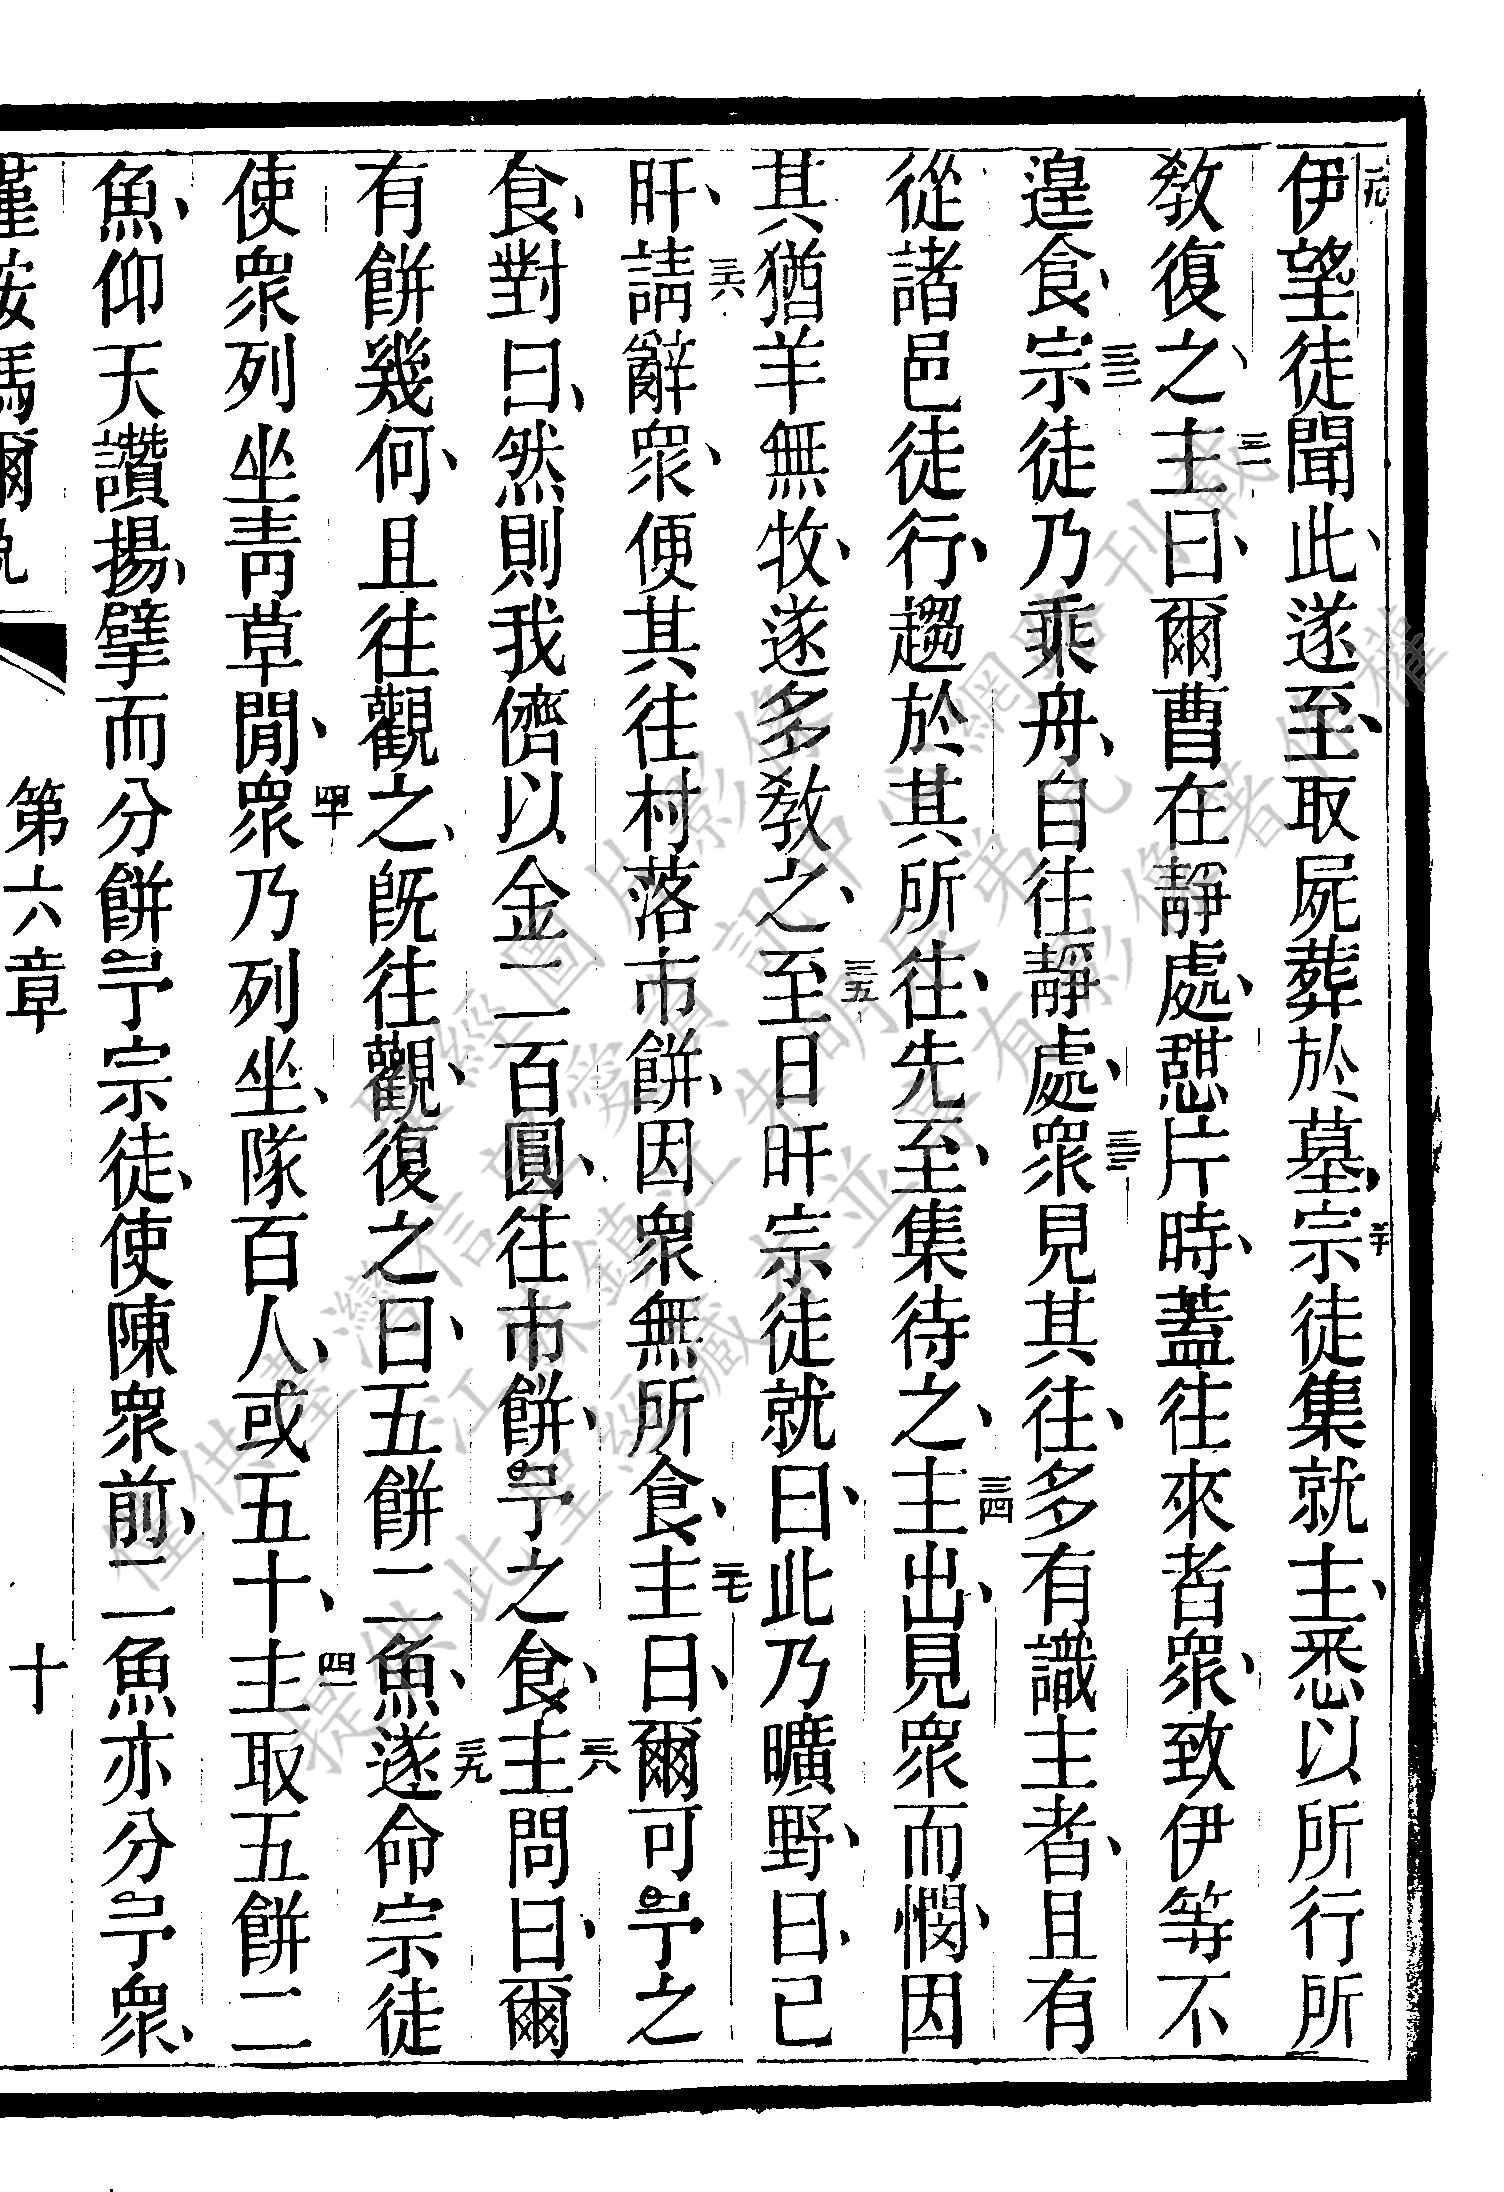 二九伊望徒聞此、遂至、取屍葬於墓、三十宗徒集就主、悉以所行所
教復之、三一主曰、爾曹在靜處、憇片時、蓋往來者衆、致伊等不
遑食、三二宗徒乃乘舟、自往靜處、三三衆見其往、多有識主者、且有
從諸邑徒行、趨於其所往、先至、集待之、三四主出、見衆而憫、因
其猶羊無牧、遂多教之、三五至日旰宗徒就曰、此乃曠野、日已
旰、三六請辭衆、便其往村落市餅、因衆無所食、三七主曰、爾可予之
食、對曰、然則我儕以金二百圓、往市餅、予之食、三八主問曰、爾
有餅幾何、且往觀之、旣往觀、復之曰、五餅二魚、三九遂命宗徒
使衆列坐靑草閒、四十衆乃列坐、隊百人、或五十、四一主取五餅二
魚、仰天讚揚、擘而分餅予宗徒、使陳衆前、二魚亦分予衆、
第六章 十